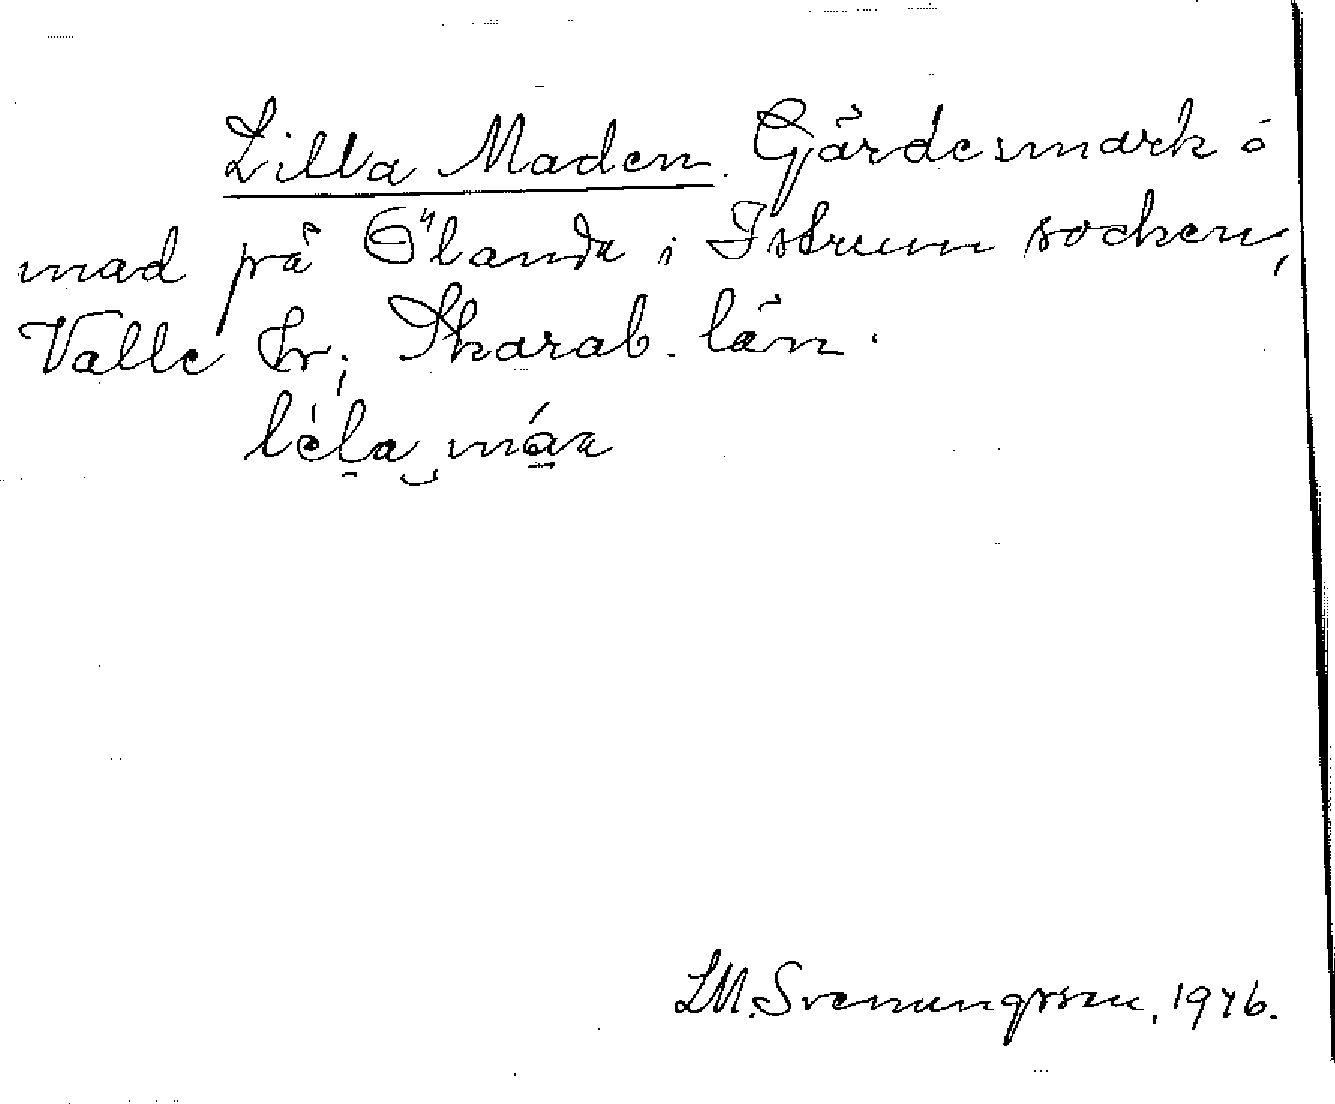 Lilla Maden. Gärdesmark o
mad på Ölända i Istrum socken,
Valle hr; Skarab. län.
lèla máa
L.M. Svenungsson, 1946.